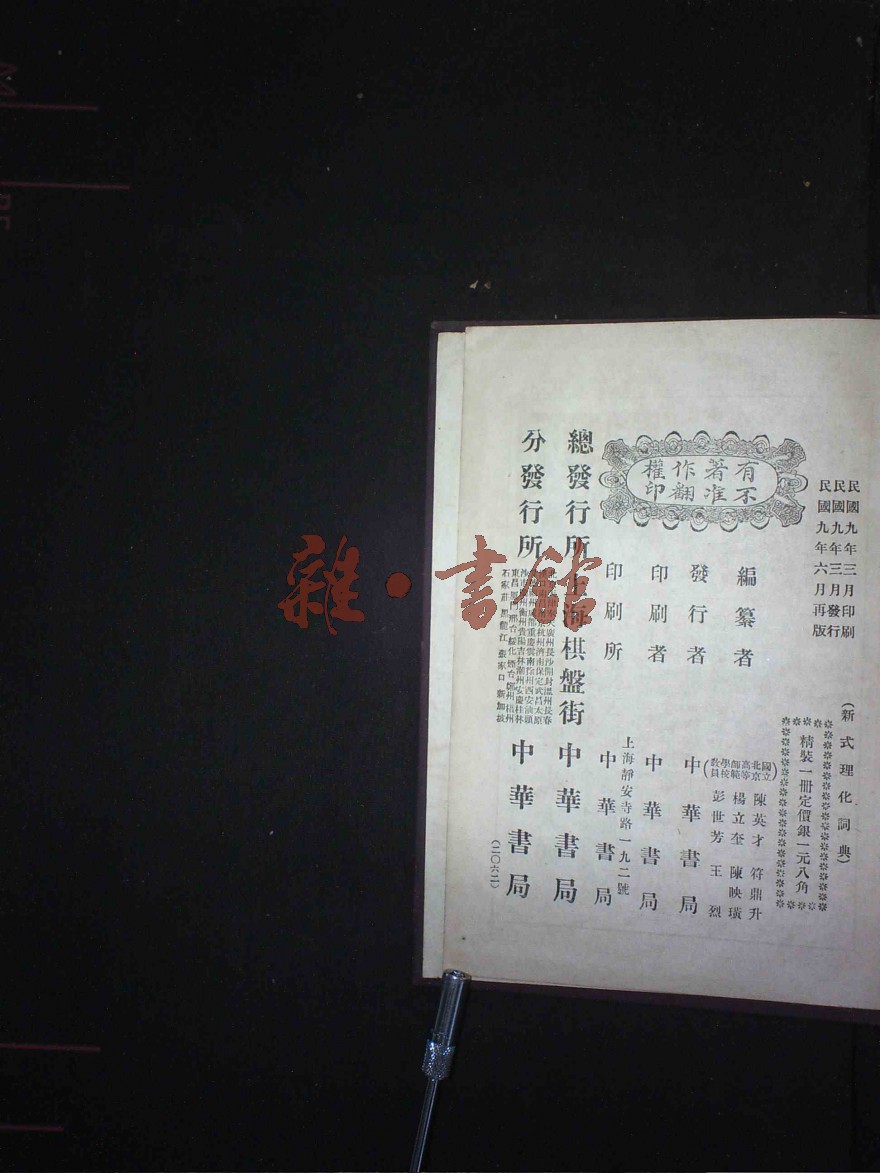 民國九年三月印刷
民國九年三月發行
民國九年六月再版
（新式理化詞典）
精裝一冊定價銀一元八角
有著作權
不准翻印
編纂者
國立北京高等師範學校教員
陳英才 符鼎升
楊立奎 陳映璜
彭世芳 王烈
發行者 中華書局
印刷者 中華書局
印刷所 上海靜安寺路一九二號
中華書局
總發行所 上海棋盤街 中華書局
分發行所
中華書局
（二〇六二）
雜·書館